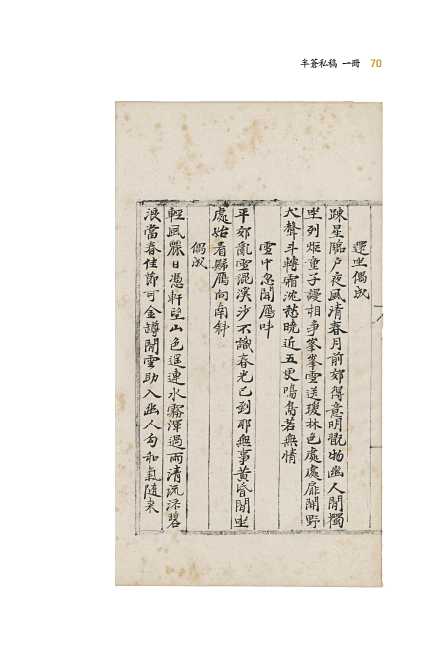 半蒼私稿 一冊 70
還坐偶成
踈星臨戶夜風清春月前郊得意明觀物幽人閒獨
坐列炬童子謾相爭峯峯雪送瓊林色處處扉開野
犬聲斗轉霜沈愁曉近五更鳴雋若無情
雪中忽聞鴈叫
平郊亂雪混溪沙不識春光已到耶無事黃昏閒坐
處始看歸鴈向南斜
偶成
輕風麗日憑軒望山色遥連水霧渾過雨清流添碧
浪當春佳節可金罇閒雲助入幽人句和氣隨來